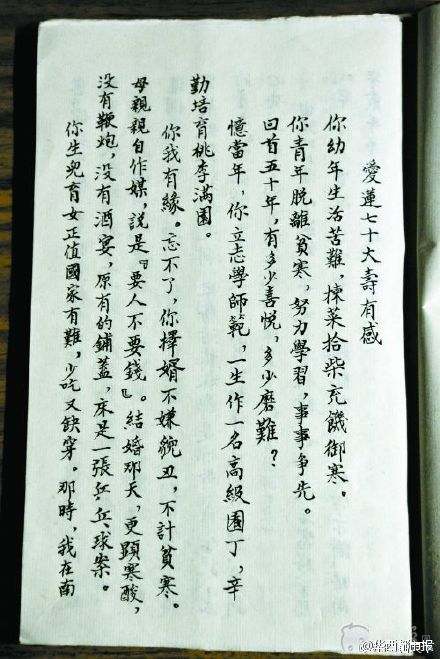 愛蓮七十大壽有感
你幼年生活苦難，揀菜拾柴充饑御寒。
你青年脱離貧寒，努力學習，事事争先。
回首五十年，有多少喜悦，多少磨難？
憶當年，你立志學師範，一生作一名高級園丁，辛
勤培育桃李滿園。
你我有緣。忘不了，你擇婿不嫌貌丑，不計貧寒。
母親親自作媒，説是『要人不要錢』。結婚那天，更顯寒酸，
没有鞭炮，没有酒宴，原有的鋪蓋，床是一張乒乓球案。
你生兒育女正值國家有難，少吃又缺穿。那時，我在南
@华西都市报